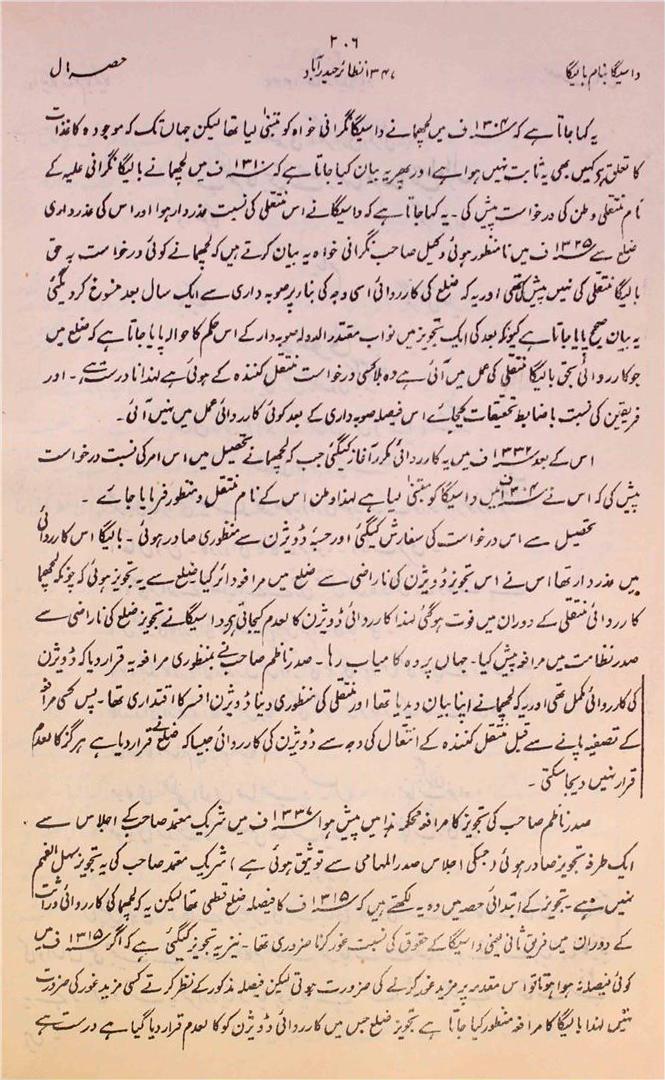 ۲۰۶
داسیگا بنام بالیگا
۱۳۴۷ف نظائر حیدرآباد
حصہ مال
یہ کہا جاتا ہے کہ ۱۳۰۴ف میں لچھمانے داسیگا نگرانی خواہ کو متبنیٰ لیا تھا لیکن جہاں تک کہ موجودہ کاغذات
کا تعلق ہے کہیں بھی یہ ثابت نہیں ہوا ہے اور پھر یہ بیان کیا جاتا ہے کہ ۱۳۱۰ف میں لچھمانے بالیگا نگرانی علیہ کے
نام منتقلی وطن کی درخواست پیش کی۔ یہ کہا جاتا ہے کہ داسیگا نے اس منتقلی کی نسبت عذردار ہوا اور اس کی عذرداری
ضلع سے ۱۳۲۵ف میں نامنظور ہوئی وکیل صاحب نگرانی خواہ یہ بیان کرتے ہیں کہ لچھمانے کوئی درخواست بہ حق
بالیگا منتقلی کی نہیں پیش کی تھی اور یہ کہ ضلع کی کارروائی اسی وجہ کی بناء پر صوبہ داری سے ایک سال بعد منسوخ کردیگئی
یہ بیان صحیح پایا جاتا ہے کیونکہ بعد کی ایک تجویز میں نواب مقتدر الدولہ صوبہ دار کے اس حکم کا حوالہ پایا جاتا ہے کہ ضلع میں
جو کارروائی بحق بالیگا منتقلی کی عمل میں آئی ہے وہ بلا کسی درخواست منتقل کنندہ کے ہوئی ہے لہذا نادرست ہے۔ اور
فریقین کی نسبت باضابطہ تحقیقات کیجائے اس فیصلہ صوبہ داری کے بعد کوئی کارروائی عمل میں نہیں آئی۔
اس کے بعد ۱۳۳۲ف میں یہ کارروائی مکرر آغاز کیگئی جب کہ لچھمانے تحصیل میں اس امر کی نسبت درخواست
پیش کی کہ اس نے ۱۳۰۴ف میں داسیگا کو متبنیٰ لیا ہے لہذا وطن اس کے نام منتقل و منظور فرمایا جائے۔
تحصیل سے اس درخواست کی سفارش کیگئی اور حسبہٗ ڈویژن سے منظوری صادر ہوئی۔ بالیگا اس کارروائی
میں عذردار تھا اس نے اس تجویز ڈویژن کی ناراضی سے ضلع میں مرافعہ دائر کیا ضلع سے یہ تجویز ہوئی کہ چونکہ لچھما
کارروائی منتقلی کے دوران میں فوت ہوگئی لہذا کارروائی ڈویژن کالعدم کیجاتی ہے داسیگا نے تجویز ضلع کی ناراضی سے
صدر نظامت میں مرافعہ پیش کیا۔ جہاں پر وہ کامیاب رہا۔ صدر ناظم صاحب نے بمنظوری مرافعہ یہ قرار دیا کہ ڈویژن
کی کارروائی مکمل تھی اور یہ کہ لچھمانے اپنا بیان دیدیا تھا اور منتقلی کی منظوری دینا ڈویژن افسر کا اقتداری تھا۔ پس کسی مرافعہ
کے تصفیہ پانے سے قبل منتقل کنندہ کے انتقال کی وجہ سے ڈویژن کی کارروائی جیسا کہ ضلع نے قرار دیا ہے ہرگز کالعدم
قرار نہیں دیجاسکتی۔
صدر ناظم صاحب کی تجویز کا مرافعہ محکمہ ہذا میں پیش ہوا ۱۳۳۷ف میں شریک معتمد صاحب کے اجلاس سے
ایک طرفہ تجویز صادر ہوئی (جسکی اجلاس صدر المہامی سے توثیق ہوئی ہے) شریک معتمد صاحب کی یہ تجویز سہل الفہم
نہیں ہے۔ تجویز کے ابتدائی حصہ میں وہ یہ لکھتے ہیں کہ ۱۳۱۵ف کا فیصلہ ضلع قطعی تھا لیکن یہ کہ لچھما کی کارروائی وراثت
کے دوران میں فریق ثانی یعنی داسیگا کے حقوق کی نسبت غور کرنا ضروری تھا۔ نیز یہ تجویز کیگئی ہے کہ اگر ۱۳۱۵ف میں
کوئی فیصلہ نہ ہوا ہوتا تو اس مقدمہ پر مزید غور کرنے کی ضرورت ہوتی لیکن فیصلہ مذکور کے نظر کرتے کسی مزید غور کی ضرورت
نہیں لہذا بالیگا کا مرافعہ منظور کیا جاتا ہے تجویز ضلع جس میں کارروائی ڈویژن کو کالعدم قرار دیا گیا ہے درست ہے